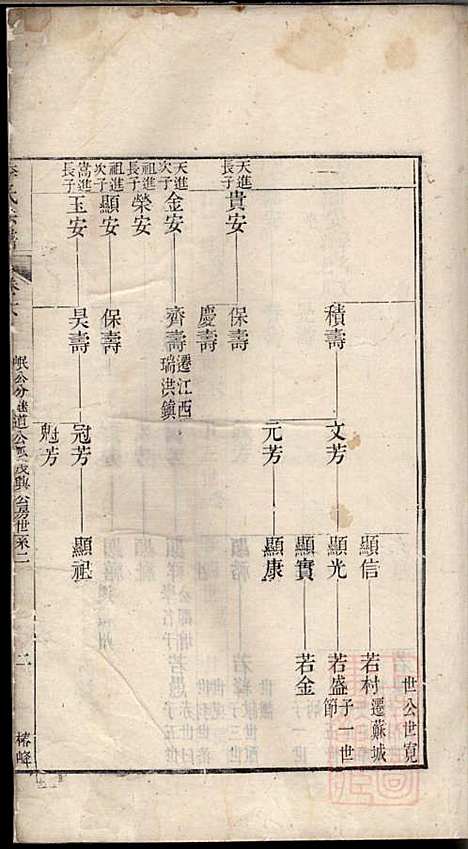 世公世寬
顯信
若村
遷蘇城
積壽
文芳
顯光
若盛
子一世
節
顯實
若金
元芳
顯康
天進
長子
貴安
保壽
慶壽
天進
次子
金安
齊壽
遷江西
瑞洪鎮
祖進
長子
榮安
祖進
次子
顯安
保壽
嵩進
長子
玉安
昊壽
冠芳
顯祖
魁芳
氏宗譜
岷公分遷道公
公房世系二
二
椿峰